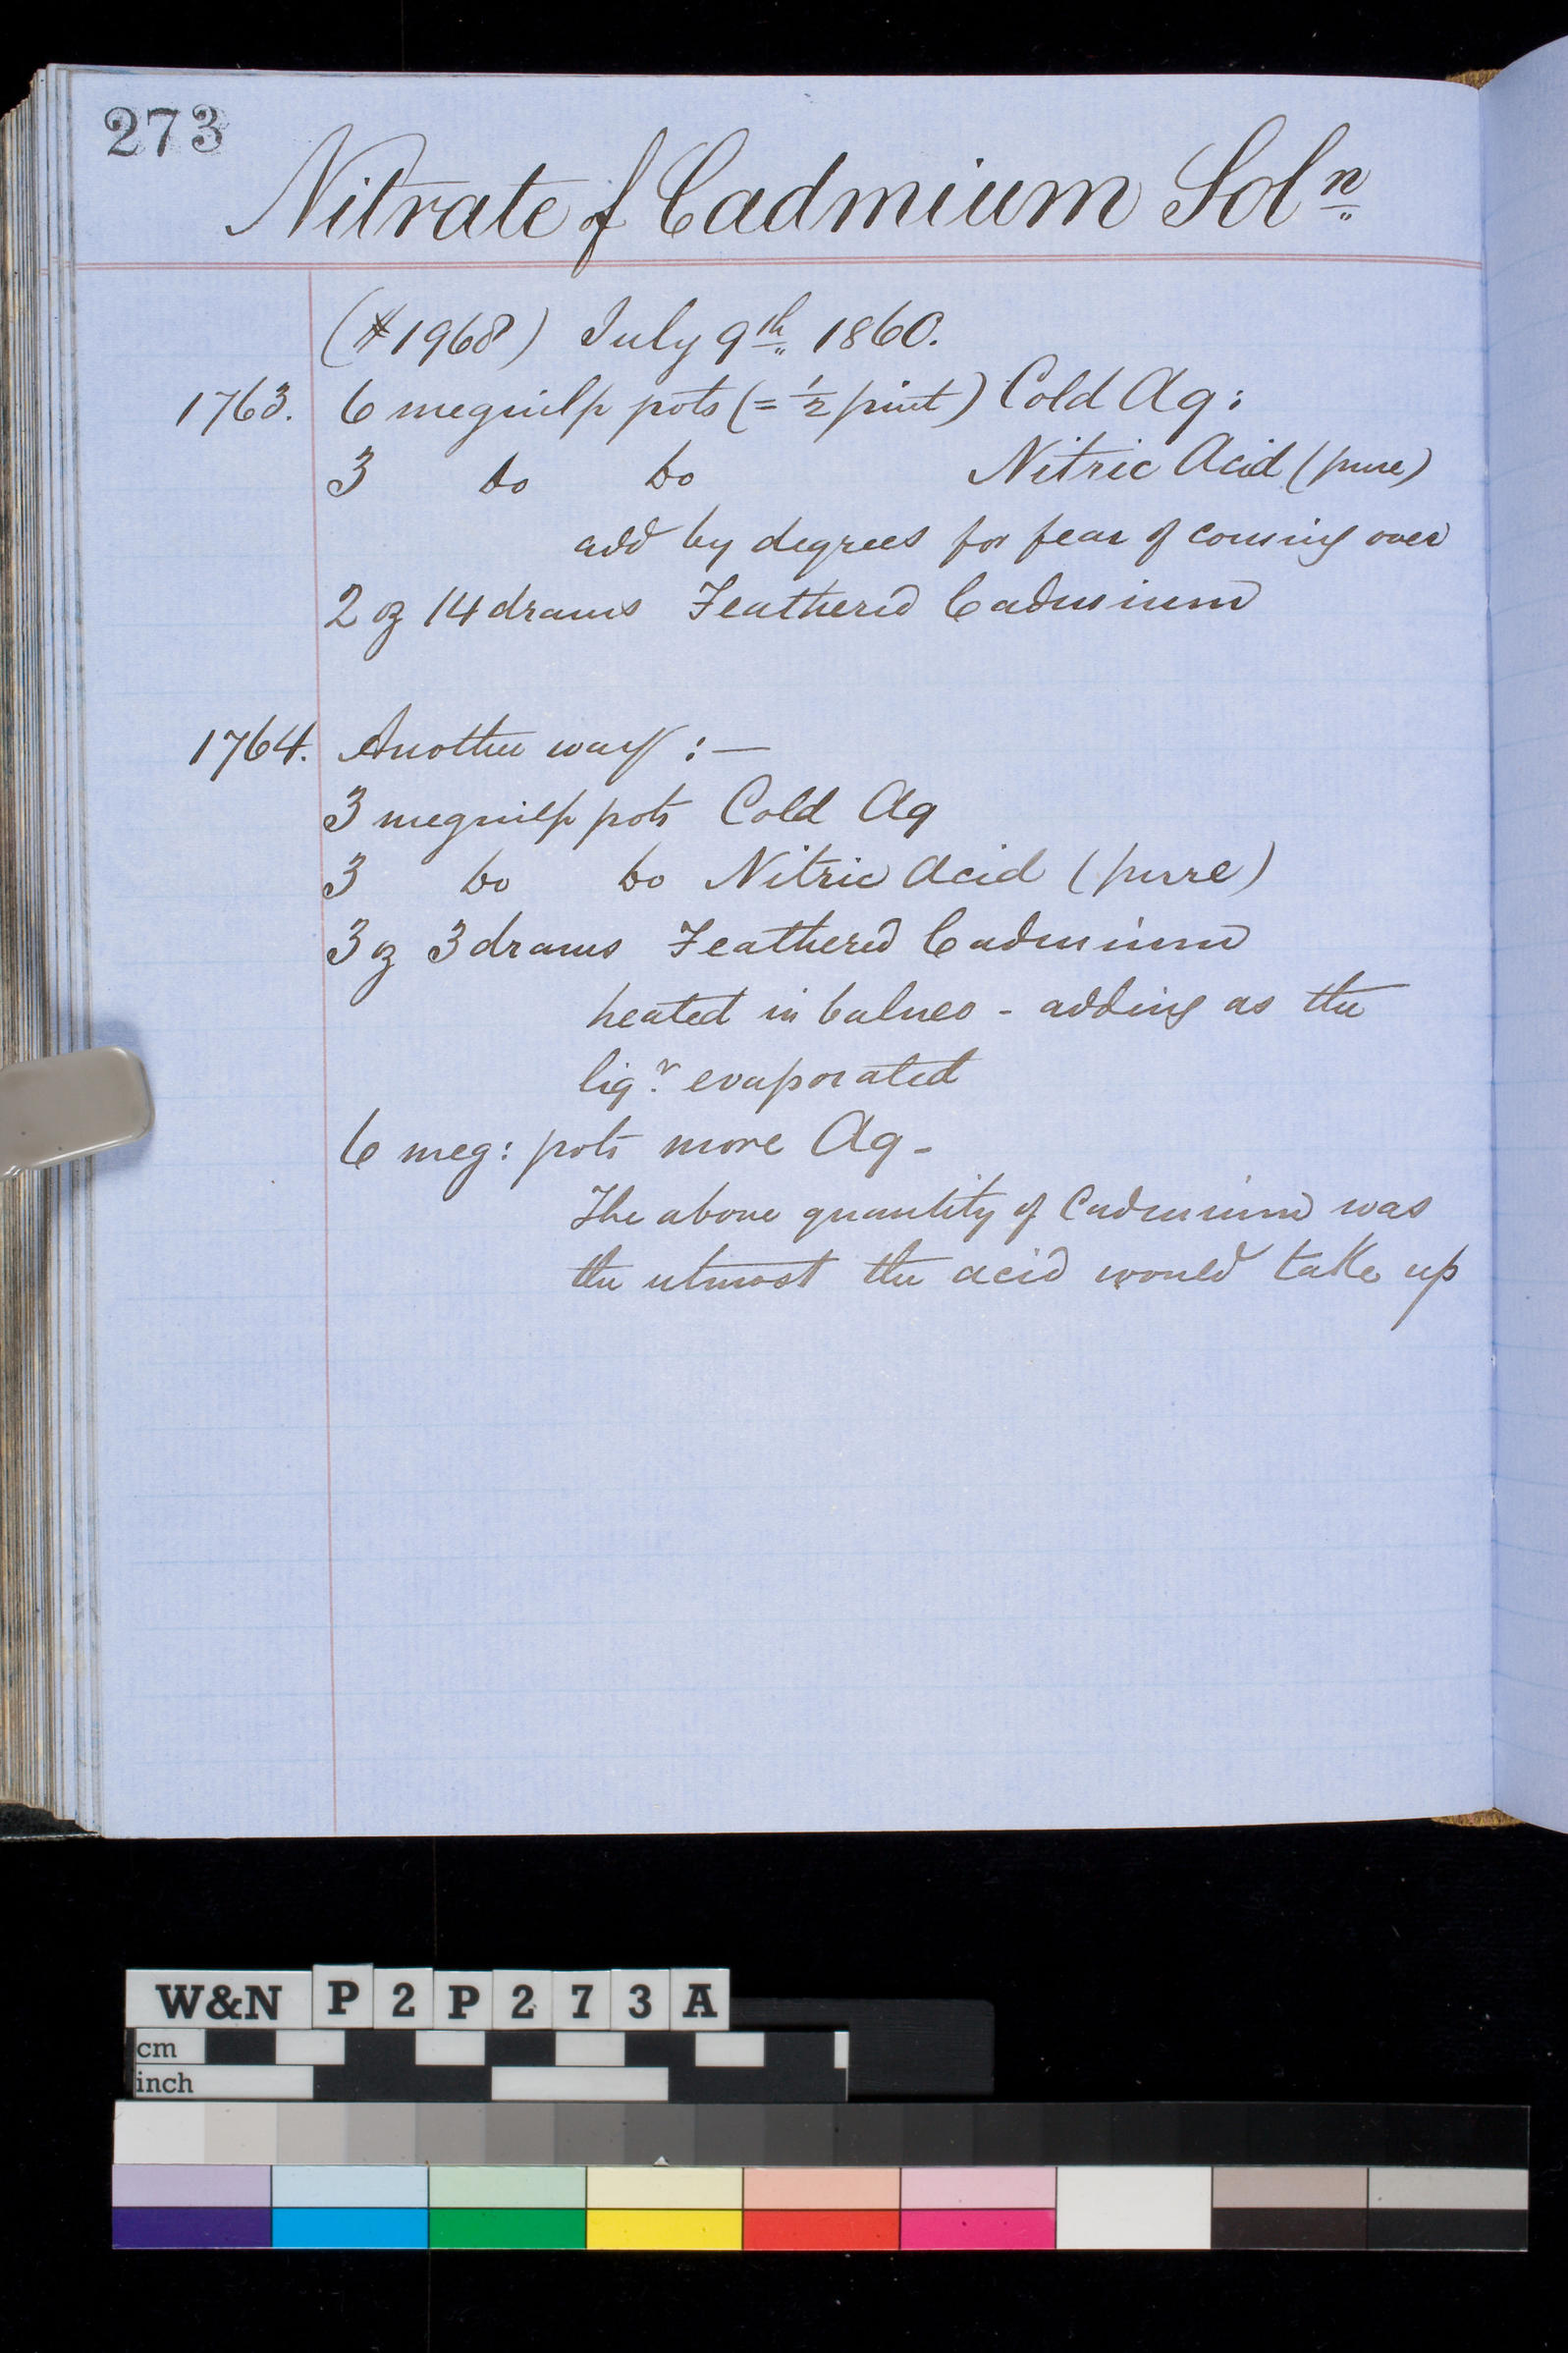 273
Nitrate of Cadmium Solⁿ
(#1968) July 9th 1860.
1763. 6 meguilp pots (= ½ pint) Cold Aq:
3 Do Do Nitric Acid (pure)
add by degrees for fear of coming over
2 oz 14 drams Feathered Cadmium
1764. Another way :—
3 meguilp pots Cold Aq
3 Do Do Nitric Acid (pure)
3 oz 3 drams Feathered Cadmium
heated in balneo - adding as the
liqʳ evaporated
6 meg: pots more Aq -
The above quantity of Cadmium was
the utmost the acid would take up
W&N P2P273A
cm
inch